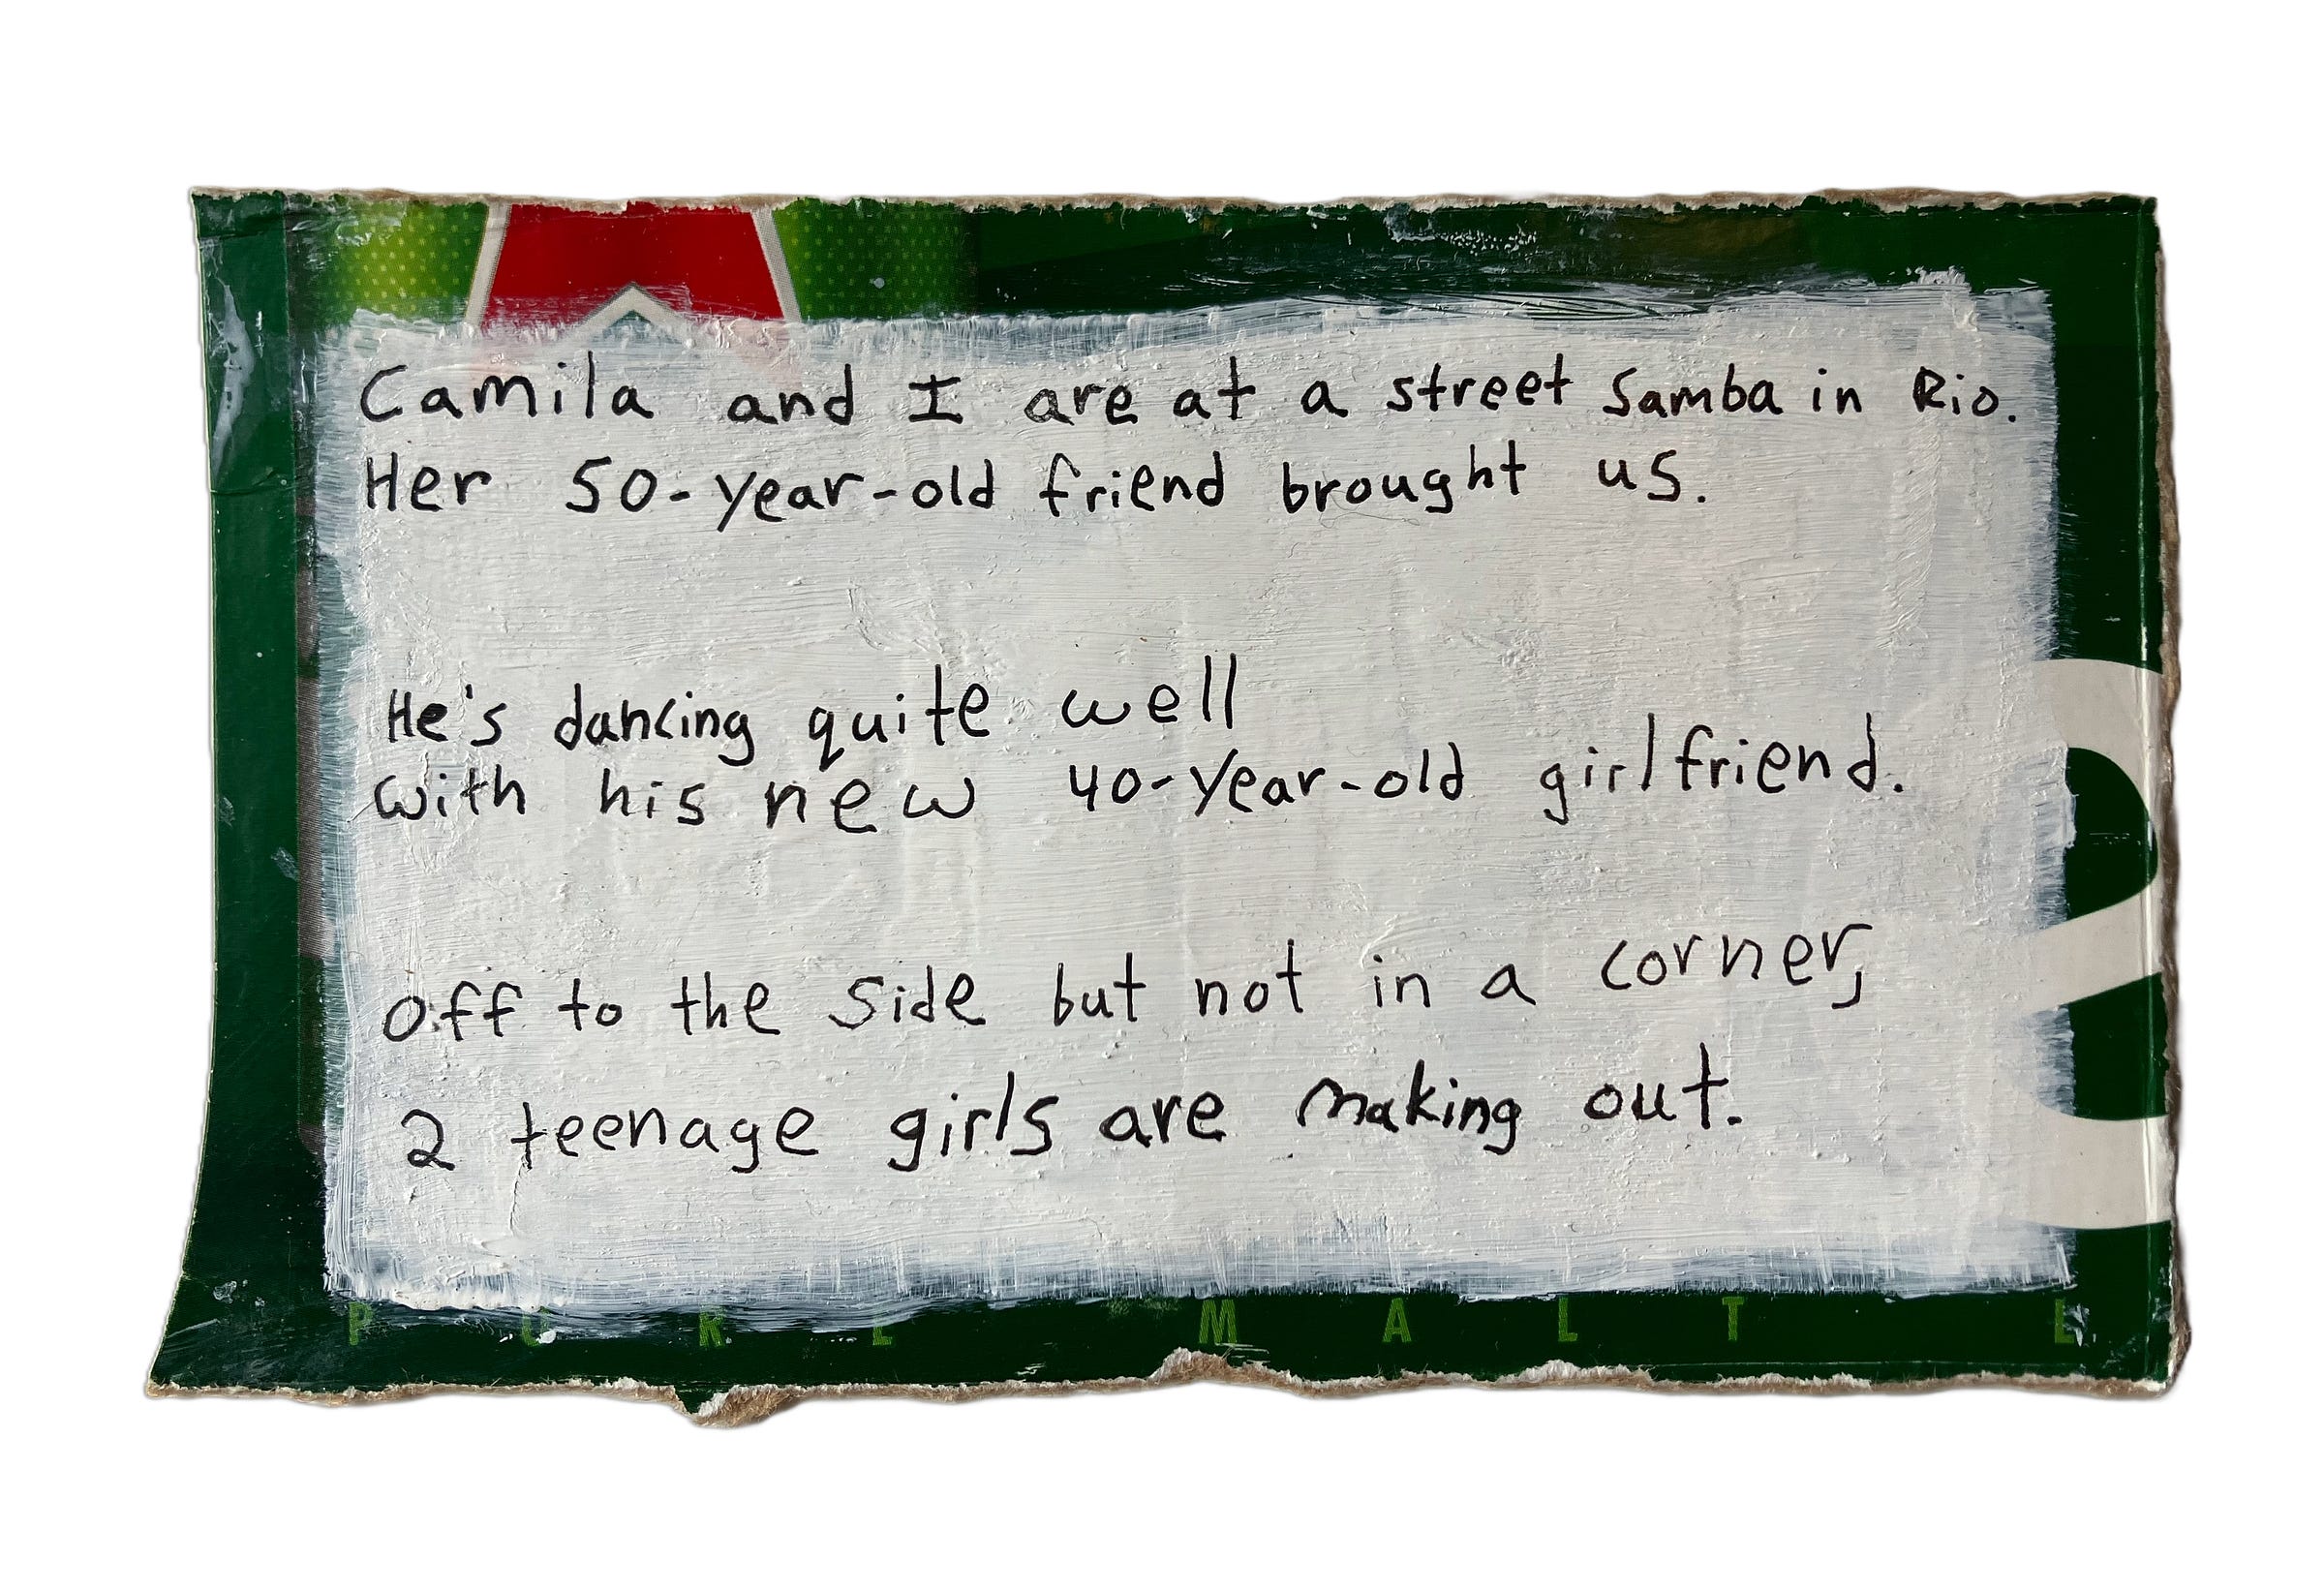 Camila and I are at a street Samba in Rio.
Her 50-year-old friend brought us.
He's dancing quite well
with his new 40-year-old girlfriend.
Off to the side but not in a corner,
2 teenage girls are making out.
PURE MALT L